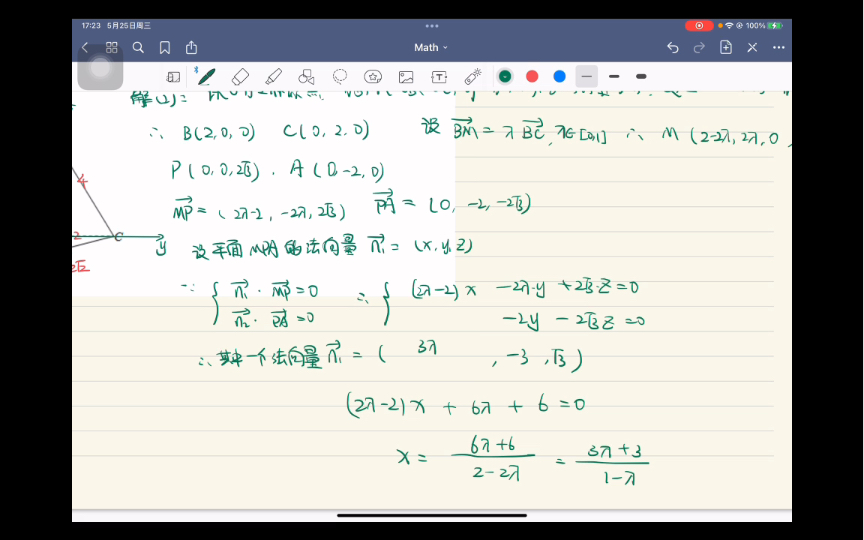 17:23 5月25日周三 100%
Math
解(1):
∴ B(2,0,0) C(0,2,0) 设 BM = λBC, λ∈[0,1] ∴ M(2-2λ,2λ,0
P(0,0,2√3). A(0,-2,0)
4
MP = (2λ-2, -2λ,2√3) PA = (0,-2,-2√3)
2 C y 设平面MPA的法向量 n₁ = (x,y,z)
2√2
∵ { n₁·MP=0 ∴ { (2λ-2)x -2λ·y +2√3·z=0
n₂·PA=0 -2y -2√3z=0
∴ 其中一个法向量 n₁ = ( 3λ , -3, √3)
(2λ-2)x + 6λ + 6 =0
x = (6λ+6)/(2-2λ) = (3λ+3)/(1-λ)